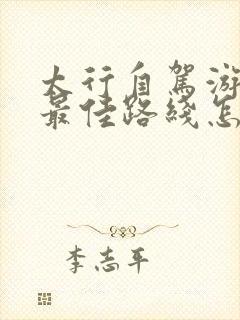 大行自驾游
最佳路线怎
李志平